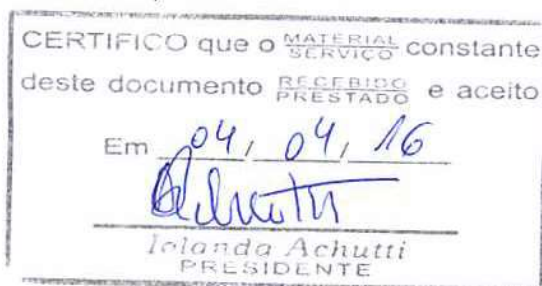 CERTIFICO que o MATERIAL SERVIÇO constante
deste documento RECEBIDO PRESTADO e aceito
Em 04, 04, 16
Achutti
Iolanda Achutti
PRESIDENTE